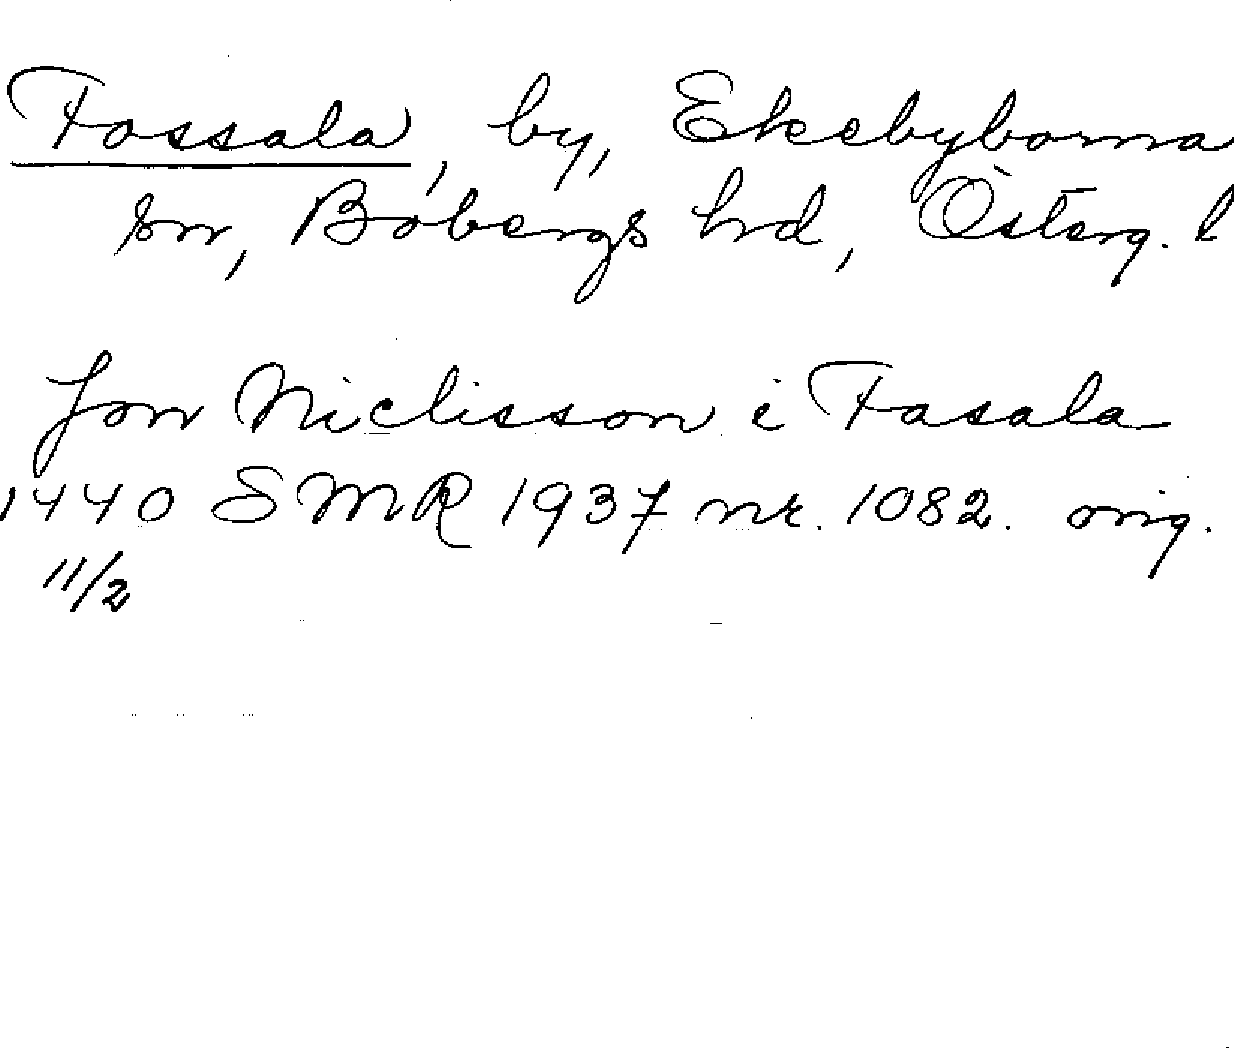 Fossala, by, Ekebyborna
sn, Bobergs hd, Österg. l
Jon Niclisson i Fasala
1440 SMR 1937 nr. 1082. orig.
11/2